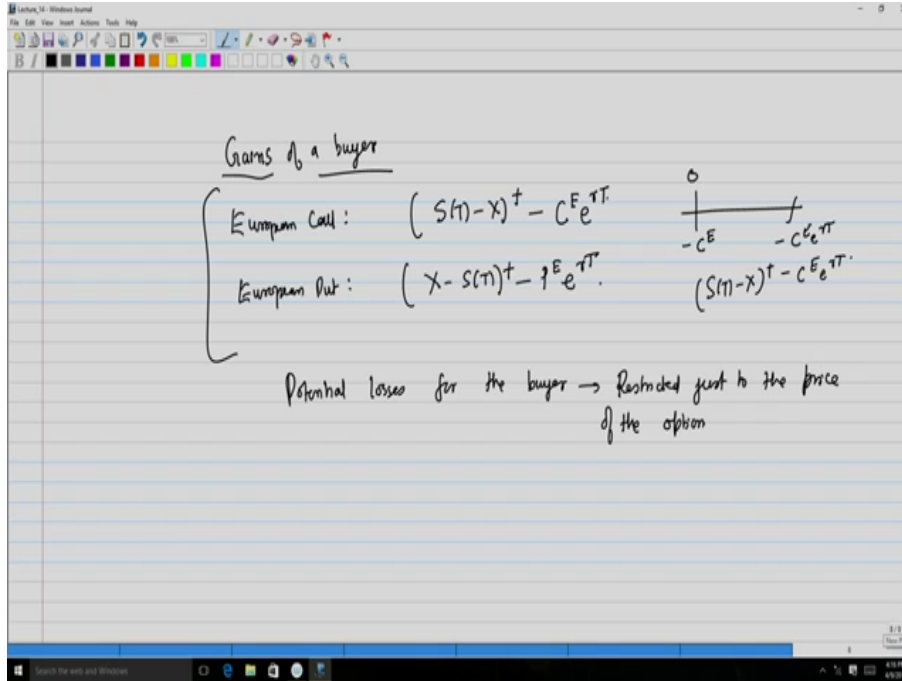 Lecture_14 - Windows Journal
File Edit View Insert Actions Tools Help
B I
Gains of a buyer
European Call: (S(T)-X)⁺ - Cᴱe^{rT}.
European Put: (X-S(T))⁺ - Pᴱe^{rT}.
0
-Cᴱ -Cᴱe^{rT}
(S(T)-X)⁺ - Cᴱe^{rT}.
Potential losses for the buyer → Restricted just to the price
of the option
Search the web and Windows